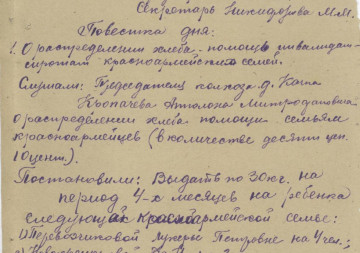 Секретарь Никифорова М.М.
Повестка дня:
1. О распределении хлеба - помощь инвалидам-
сиротам красноармейских семей.
Слушали: Председателя колхоза д. Кача
Кропачева Митрофановича
о распределении хлеба помощи семьям
красноармейцев (в количестве десяти цен.
10 цент.).
Постановили: Выдать по 30 кг. на
период 4-х месяцев на ребенка
следующей красноармейской семье:
1) Перевозчиковой Петровне на 4 чел.;